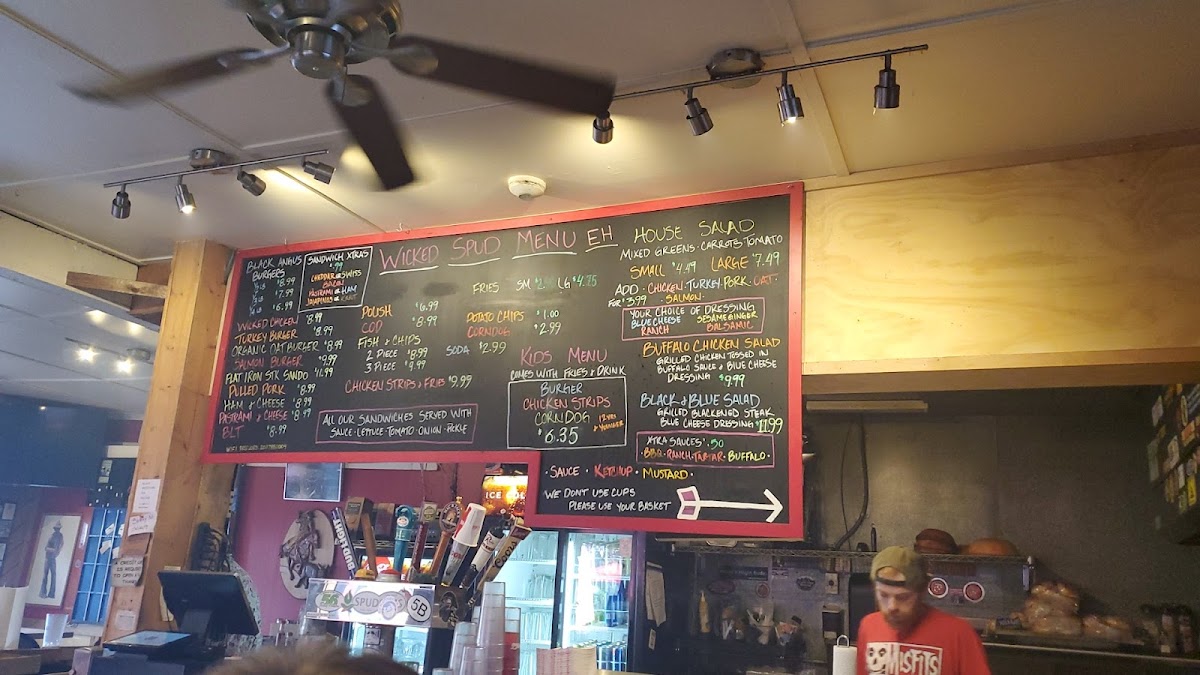 WICKED SPUD MENU EH
BLACK ANGUS
BURGERS
$8.99
$7.99
$6.99
SANDWICH XTRAS
.99
CHEDDAR SWISS
BACON
PASTRAMI HAM
JALAPENOS
WICKED CHICKEN $8.99
TURKEY BURGER $8.99
ORGANIC OAT BURGER $8.99
SALMON BURGER $9.99
FLAT IRON STK SANDO
PULLED PORK $8.99
HAM & CHEESE $8.99
PASTRAMI & CHEESE $8.99
BLT $8.99
POLISH $6.99
COD $8.99
FISH & CHIPS
2 PIECE $8.99
3 PIECE $9.99
CHICKEN STRIPS & FRIES $9.99
ALL OUR SANDWICHES SERVED WITH
SAUCE · LETTUCE · TOMATO · ONION · PICKLE
FRIES SM LG $4.75
POTATO CHIPS $1.00
CORNDOG $2.99
SODA $2.99
KIDS MENU
COMES WITH FRIES & DRINK
BURGER
CHICKEN STRIPS
CORNDOG
12 YRS
& YOUNGER
$6.35
HOUSE SALAD
MIXED GREENS · CARROTS TOMATO
SMALL $4.49 LARGE $7.49
ADD · CHICKEN · TURKEY · PORK · OAT ·
FOR $3.99 · SALMON ·
YOUR CHOICE OF DRESSING
BLUE CHEESE SESAME GINGER
RANCH BALSAMIC
BUFFALO CHICKEN SALAD
GRILLED CHICKEN TOSSED IN
BUFFALO SAUCE & BLUE CHEESE
DRESSING $9.99
BLACK & BLUE SALAD
GRILLED BLACKENED STEAK
BLUE CHEESE DRESSING $11.99
XTRA SAUCES .50
· BBQ · RANCH · TARTAR · BUFFALO ·
· SAUCE · KETCHUP · MUSTARD ·
WE DONT USE CUPS
PLEASE USE YOUR BASKET
ICE
BUD LIGHT
SPUD
5B
MISFITS